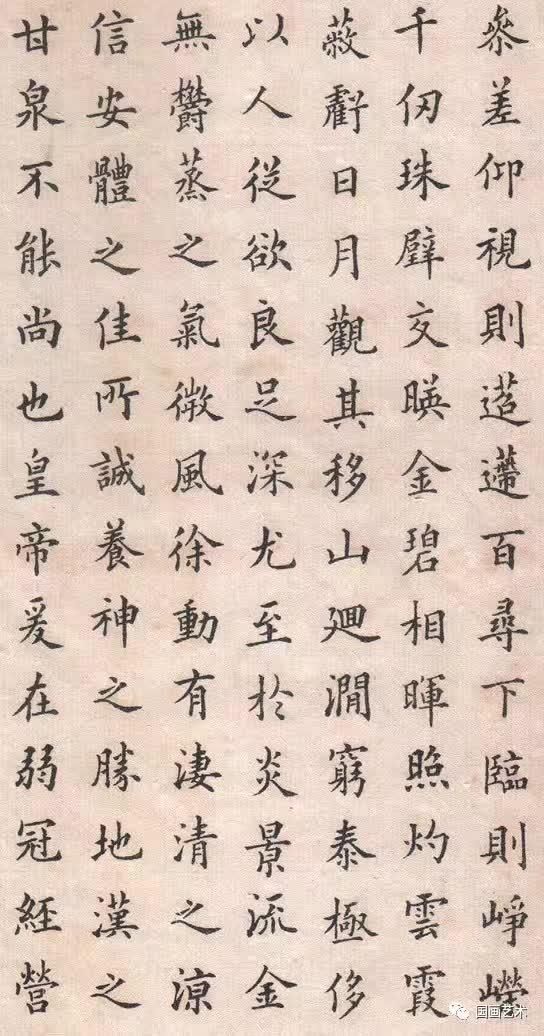 叅差仰視則迢遰百尋下臨則崢嶸
千仞珠璧交暎金碧相暉照灼雲霞
蔽虧日月觀其移山廻澗窮泰極侈
以人從欲良足深尤至於炎景流金
無欝蒸之氣微風徐動有淒清之涼
信安體之佳所誠養神之勝地漢之
甘泉不能尚也皇帝爰在弱冠經營
国画艺术